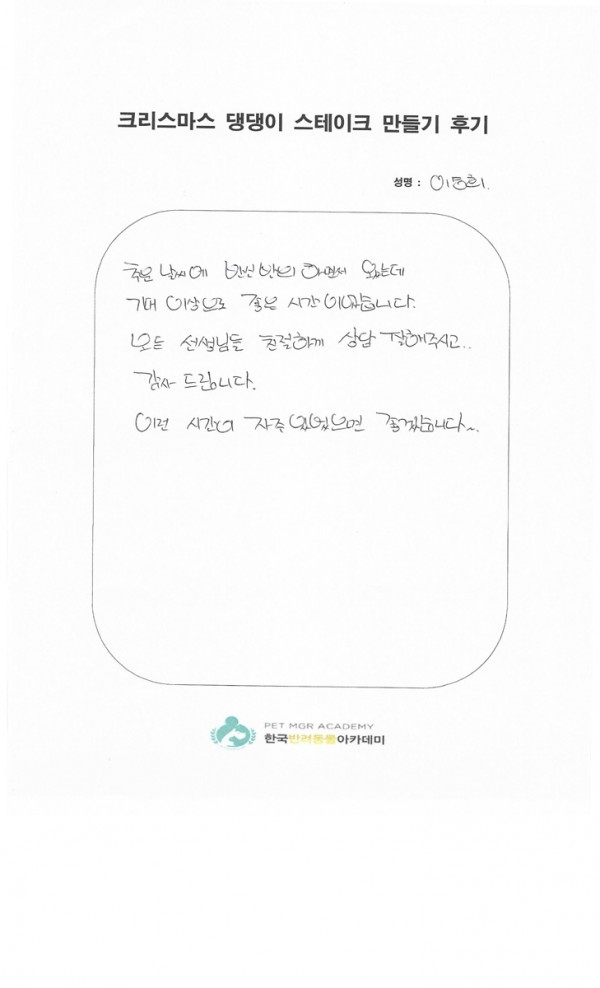 크리스마스 댕댕이 스테이크 만들기 후기
성명 : 이동희.
추운 날씨에 반신반의 하면서 왔는데
기대 이상으로 좋은 시간이었습니다.
모든 선생님들 친절하게 상담 잘해주시고..
감사 드립니다.
이런 시간이 자주 있었으면 좋겠습니다~.
PET MGR ACADEMY
한국반려동물아카데미